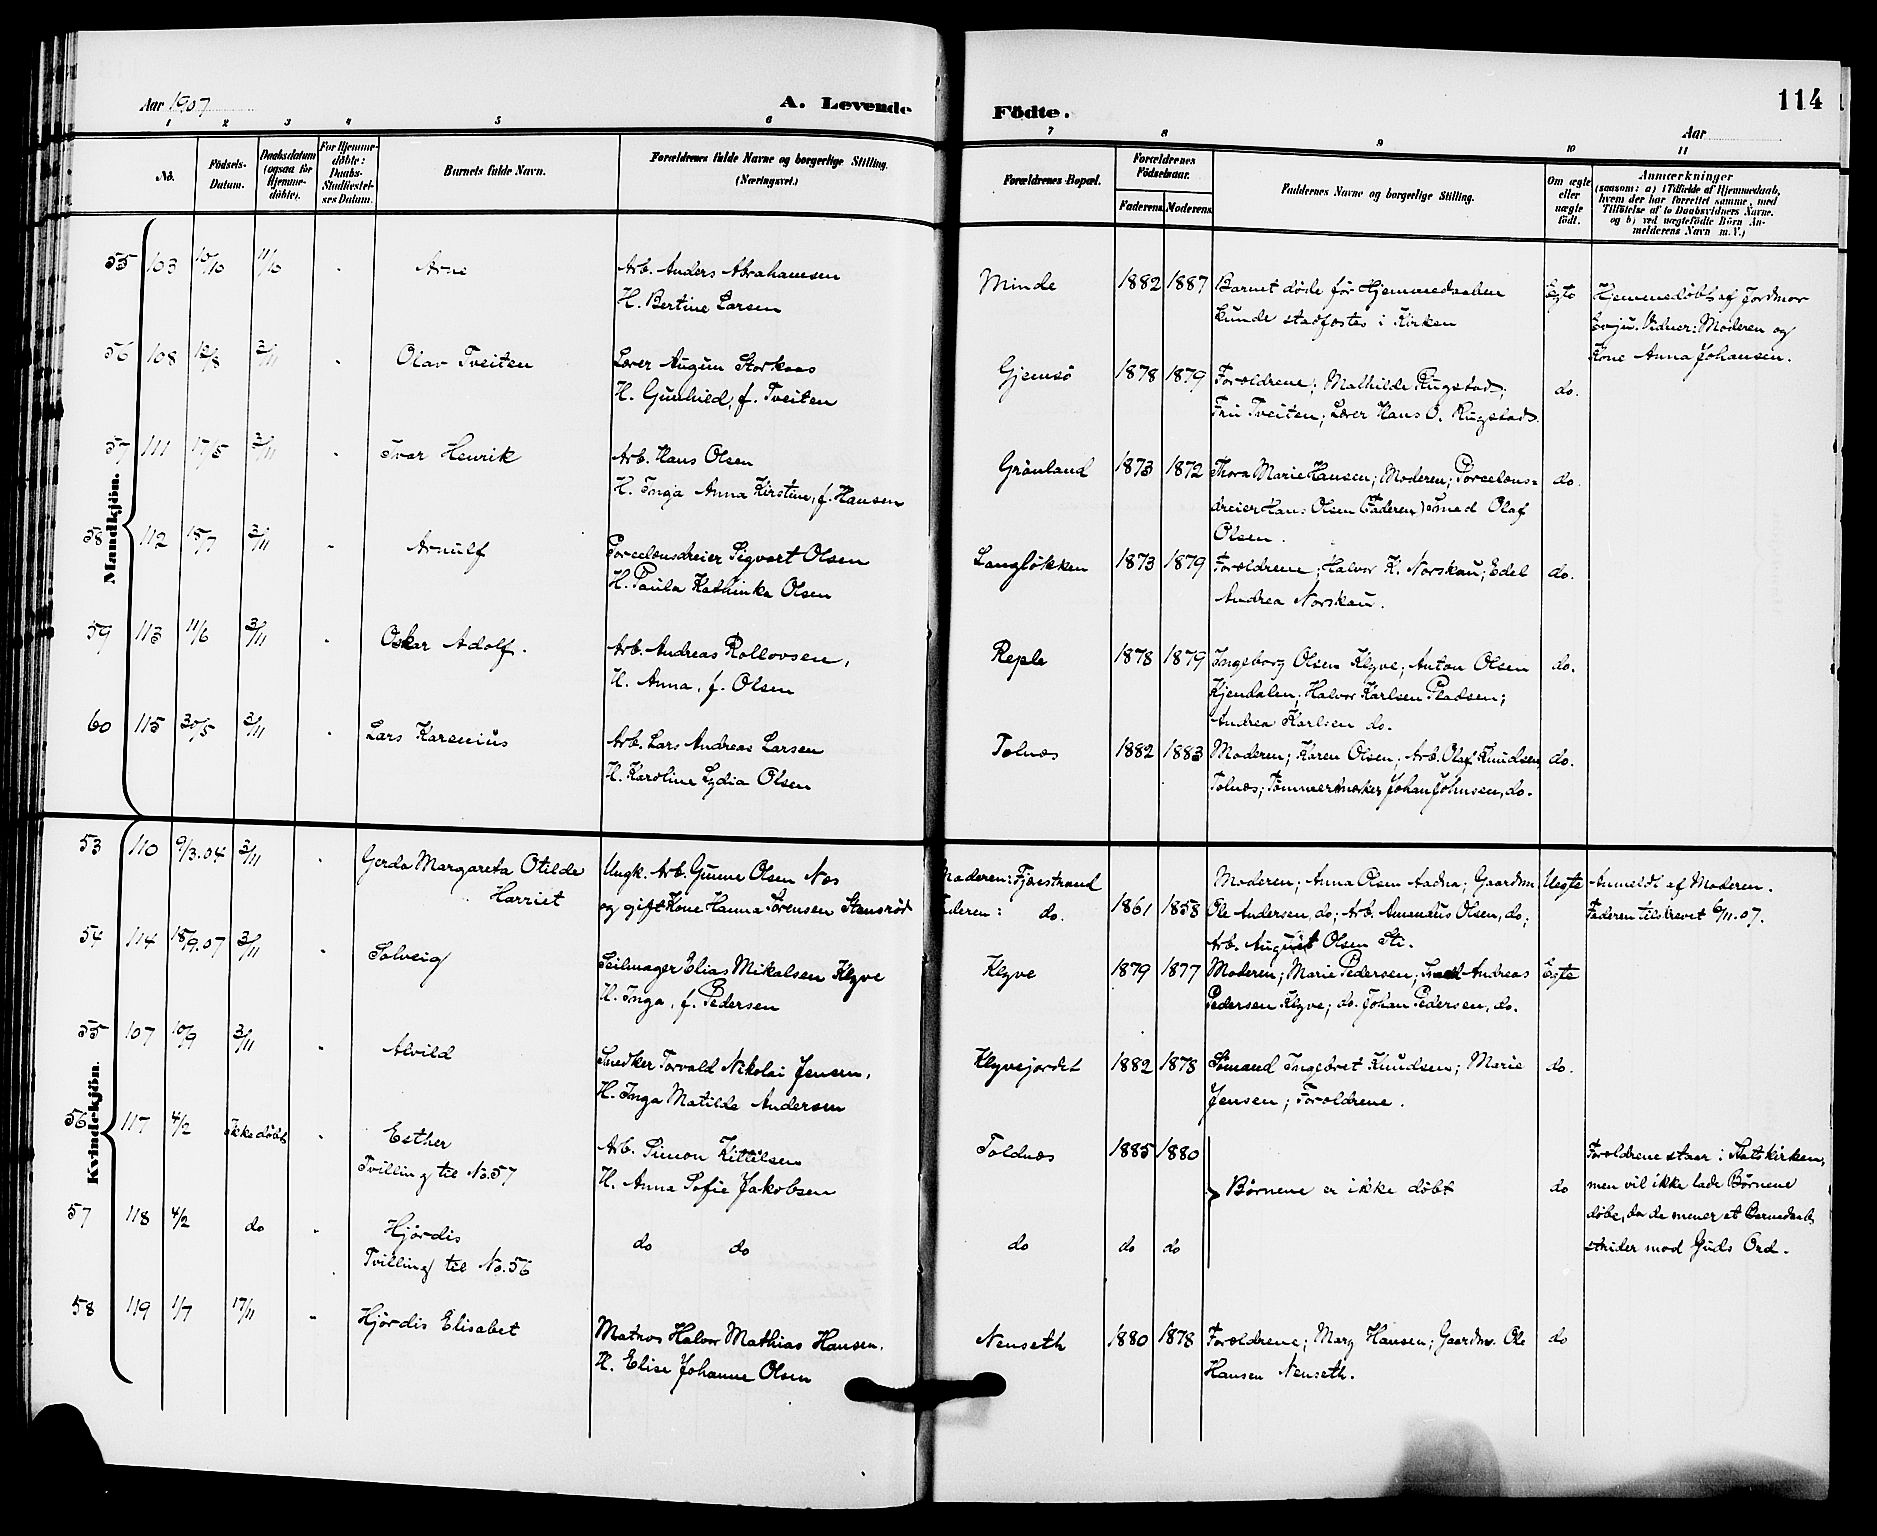 Aar 1907
A. Levende
Födte.
114
Aar
1 2 3 4 5 6 7 8 9 10 11
No.
Födsels-
Datum.
Daabsdatum
(ogsaa for
Hjemme-
döbte).
For Hjemme-
döbte:
Daabs-
Stadfæstel-
ses Datum.
Barnets fulde Navn.
Forældrenes fulde Navne og borgerlige Stilling.
(Næringsvei.)
Forældrenes Bopæl.
Forældrenes
Födselsaar.
Faderens Moderens
Faddernes Navne og borgerlige Stilling.
Om ægte
eller
uægte
födt.
Anmærkninger
(saasom: a) i Tilfælde af Hjemmedaab,
hvem der har forrettet samme, med
Tilföielse af to Daabsvidners Navne.
og b) ved uægtefödte Börn An-
melderens Navn m. V.)
Mandkjön.
55 103 10/10 11/10 " Arne
Arb. Anders Abrahamsen
H. Bertine Larsen
Minde 1882 1887
Barnet døde før Hjemmedaaben
kunde stadfæstes i Kirken
Egte
Hjemmedøbt af Jordmor
Evju. Vidner: Moderen og
Kone Anna Johansen.
56 108 12/8 3/11 " Olav Tveiten
Lærer Augun Storkaas
H. Gunhild, f. Tveiten
Gjemsö 1878 1879
Forældrene; Mathilde Rugstad;
Fru Tveiten; Lærer Hans O. Rugstad.
do.
57 111 17/5 3/11 " Ivar Henrik
Arb. Hans Olsen
H. Inga Anna Kirstine, f. Hansen
Grönland 1873 1872
Thora Marie Hansen; Moderen; Porcelæns-
dreier Han: Olsen (Faderen) Olaf
Olsen.
do.
58 112 15/7 3/11 " Arnulf
Porcelænsdreier Sigvart Olsen
H. Paula Kathinka Olsen
Langlökken 1873 1879
Forældrene; Halvor K. Norskau; Edel
Andrea Norskau.
do.
59 113 11/6 3/11 " Oskar Adolf.
Arb. Andreas Rollovsen,
H. Anna, f. Olsen
Reple 1878 1879
Ingeborg Olsen Klyve; Anton Olsen
Kjendalen; Halvor Karlsen Pladsen;
Andrea Karlsen do.
do.
60 115 30/5 3/11 " Lars Karenius
Arb. Lars Andreas Larsen
H. Karoline Lydia Olsen
Tolnæs 1882 1883
Moderen; Karen Olsen; Arb. Olaf Knudsen,
Tolnæs; Tömmermærker Johan Johnsen, do.
do.
Kvindekjön.
53 110 9/3.04 3/11 " Gerda Margareta Otilde
Harriet
Ungk. Arb. Gunne Olsen Næs
og gift Kone Hanna Sørensen Stansröd
Moderen: Fjærestrand
Faderen: do. 1861 1858
Moderen; Anna Olsen Aadna; Gaardm.
Ole Andersen, do; Arb. Amandus Olsen, do;
Arb. August Olsen Sti.
Uegte
Anmeldt af Moderen.
Faderen tilskrevet 6/11.07.
54 114 18/9.07 3/11 " Solveig
Seilmager Elias Mikalsen Klyve
H. Inga, f. Pedersen
Klyve 1879 1877
Moderen; Marie Pedersen; Andreas
Pedersen Klyve; do. Johan Pedersen, do.
Egte
55 107 10/9 3/11 " Alvild
Snedker Torvald Nikolai Jensen,
H. Inga Matilde Andersen
Klyvejordet 1882 1878
Sömand Ingebret Knudsen; Marie
Jensen; Forældrene.
do.
56 117 4/2 ikke døbt " Esther
Tvilling til No. 57
Arb. Simon Kittilsen
H. Anna Sofie Jakobsen
Toldnæs 1885 1880
Börnene er ikke döbt
do
Forældrene staar i Statskirken,
men vil ikke lade Börnene
döbe, da de mener at Barnedaab
strider mod Guds Ord.
57 118 4/2 do " Hjördis
Tvilling til No. 56
do do
do do do
58 119 1/7 17/11 " Hjördis Elisabet
Matros Halvor Mathias Hansen.
H. Elise Johanne Olsen
Nenseth 1880 1878
Forældrene; Marg Hansen; Gaardm. Ole
Hansen Nenseth.
do